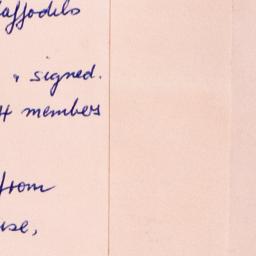 daffodils
& signed.
4 members
from
use,